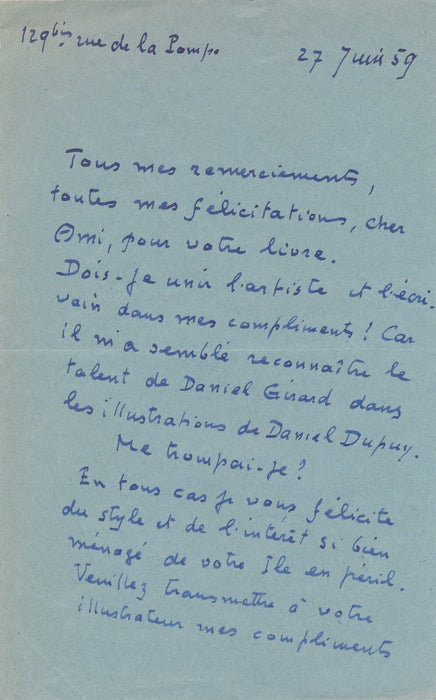 129bis rue de la Pompe
27 Juin 59
Tous mes remerciements,
toutes mes félicitations, cher
Ami, pour votre livre.
Dois-je unir l'artiste et l'écri-
vain dans mes compliments! Car
il m'a semblé reconnaître le
talent de Daniel Girard dans
les illustrations de Daniel Dupuy.
Me trompai-je?
En tous cas je vous félicite
du style et de l'intérêt si bien
ménagé de votre Ile en péril.
Veuillez transmettre à votre
illustrateur mes compliments